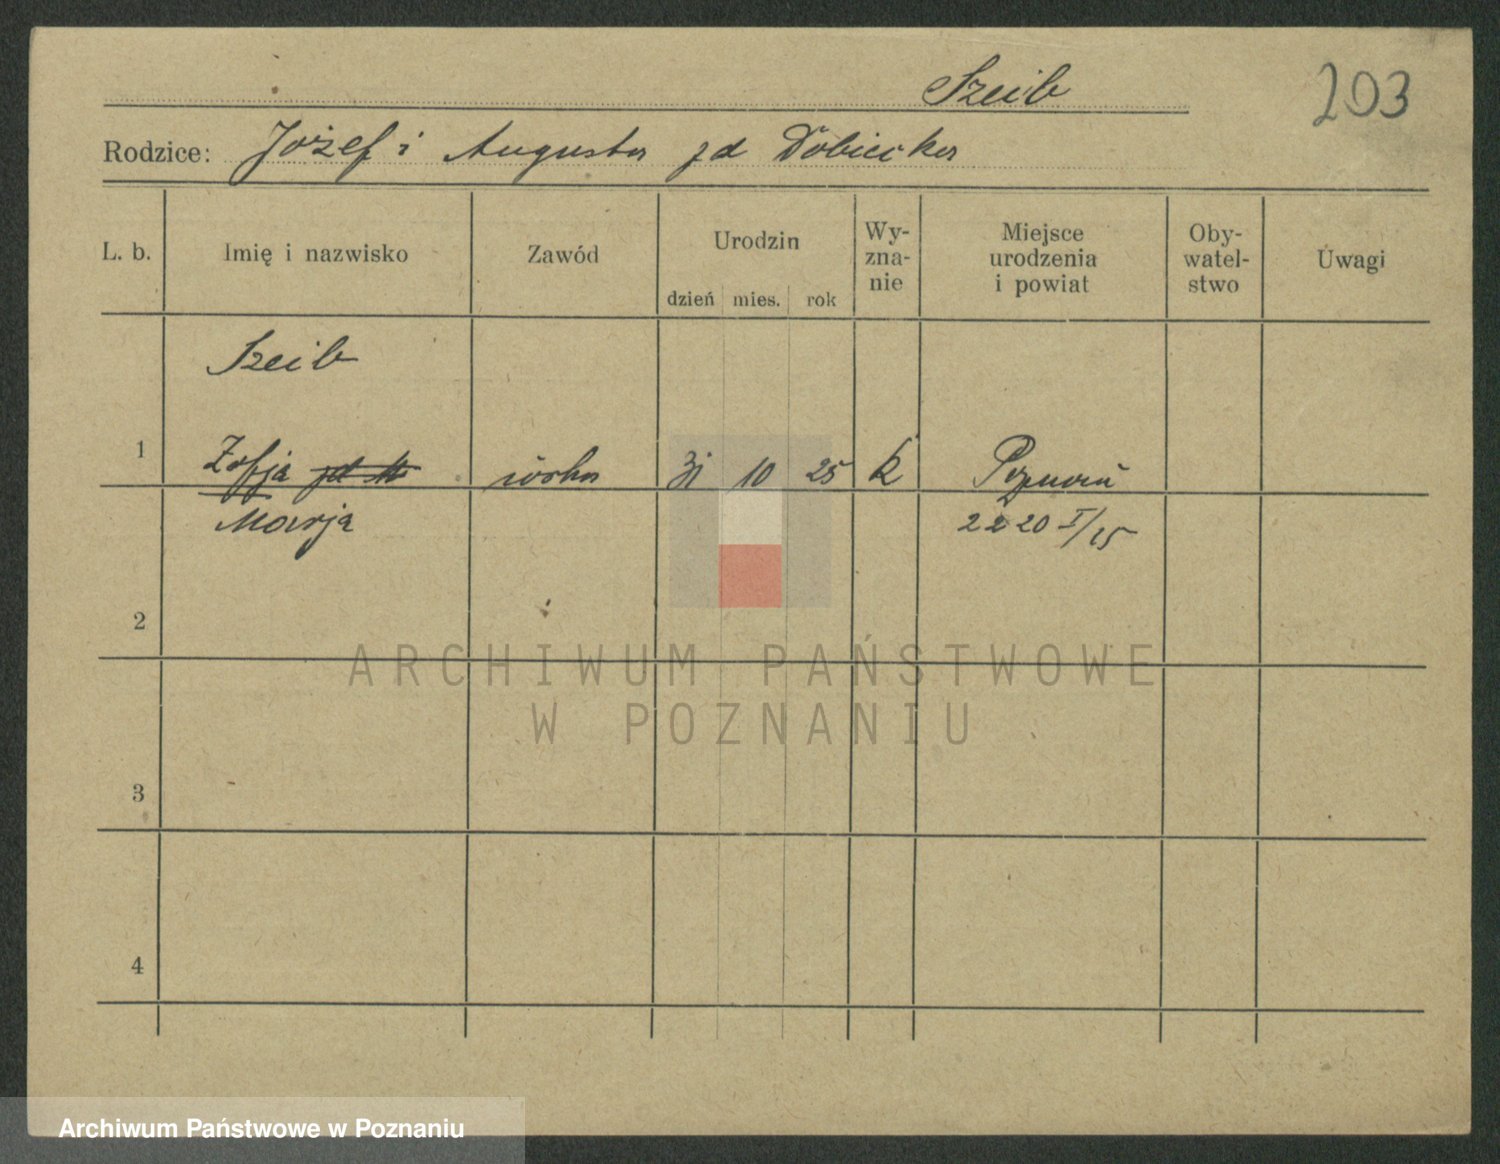 Szeib
203
Rodzice: Józef i Augusta zd Dobiecka
L. b. Imię i nazwisko Zawód Urodzin dzień mies. rok Wy-zna-nie Miejsce urodzenia i powiat Oby-watel-stwo Uwagi
Szeib
1 Zofja córka 31 10 25 k Poznań
Marja
2
3
4
ARCHIWUM PAŃSTWOWE
W POZNANIU
Archiwum Państwowe w Poznaniu